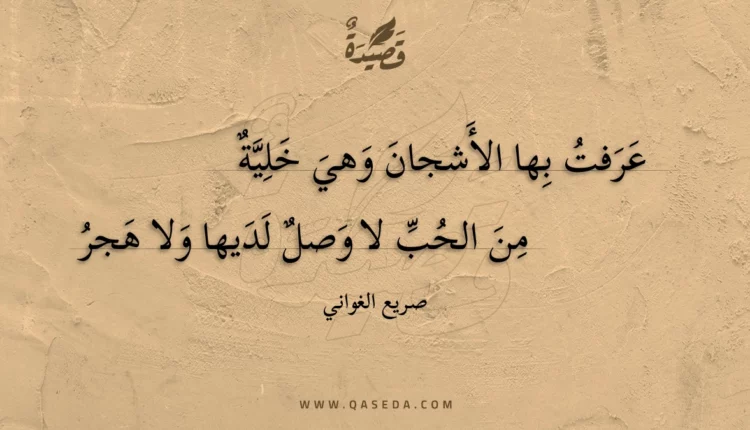 قَصِيدَةٌ
عَرَفتُ بِها الأَشجانَ وَهيَ خَلِيَّةٌ
مِنَ الحُبِّ لا وَصلٌ لَدَيها وَلا هَجرُ
صريع الغواني
WWW.QASEDA.COM